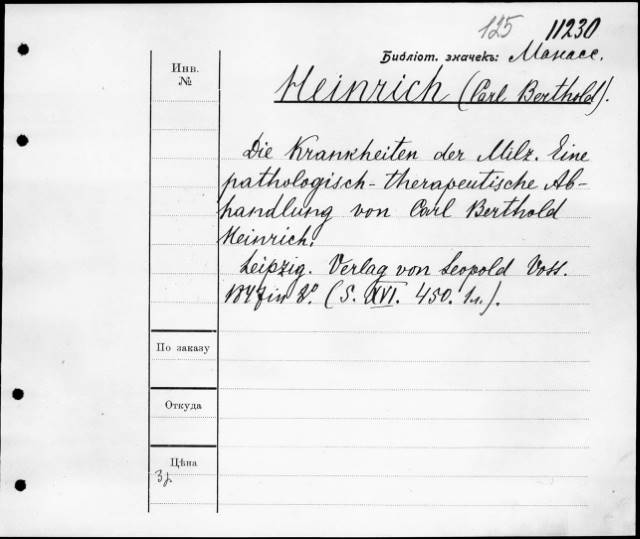 125 11230
Библіот. значекъ: Манасс.
Инв.
№
Heinrich (Carl Berthold).
Die Krankheiten der Milz. Eine
pathologisch-therapeutische Ab-
handlung von Carl Berthold
Heinrich.
Leipzig. Verlag von Leopold Voss.
1847 in 8º. (S. XVI. 450. 1л.).
По заказу
Откуда
Цѣна
3р